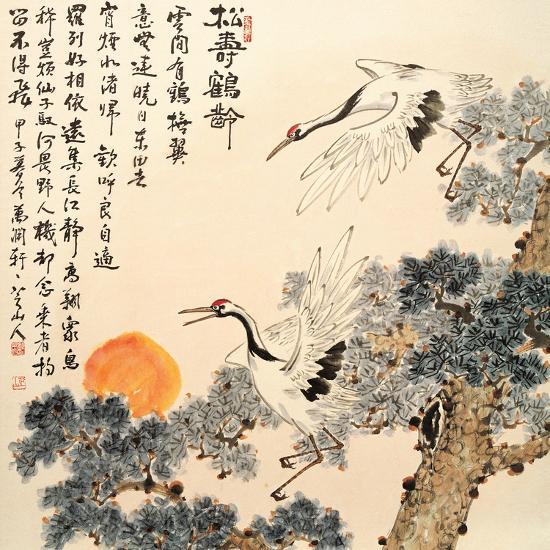 松壽鶴齡
雲間有鶴搶翼
意無違曉日東田去
宵煙水渚歸 歡呼良自適
羅列好相依 遠集長江靜 高翔衆鳥
稀豈煩仙子馭何畏野人機却念乘者拘
留不得飛 甲子夢萬澗軒山人